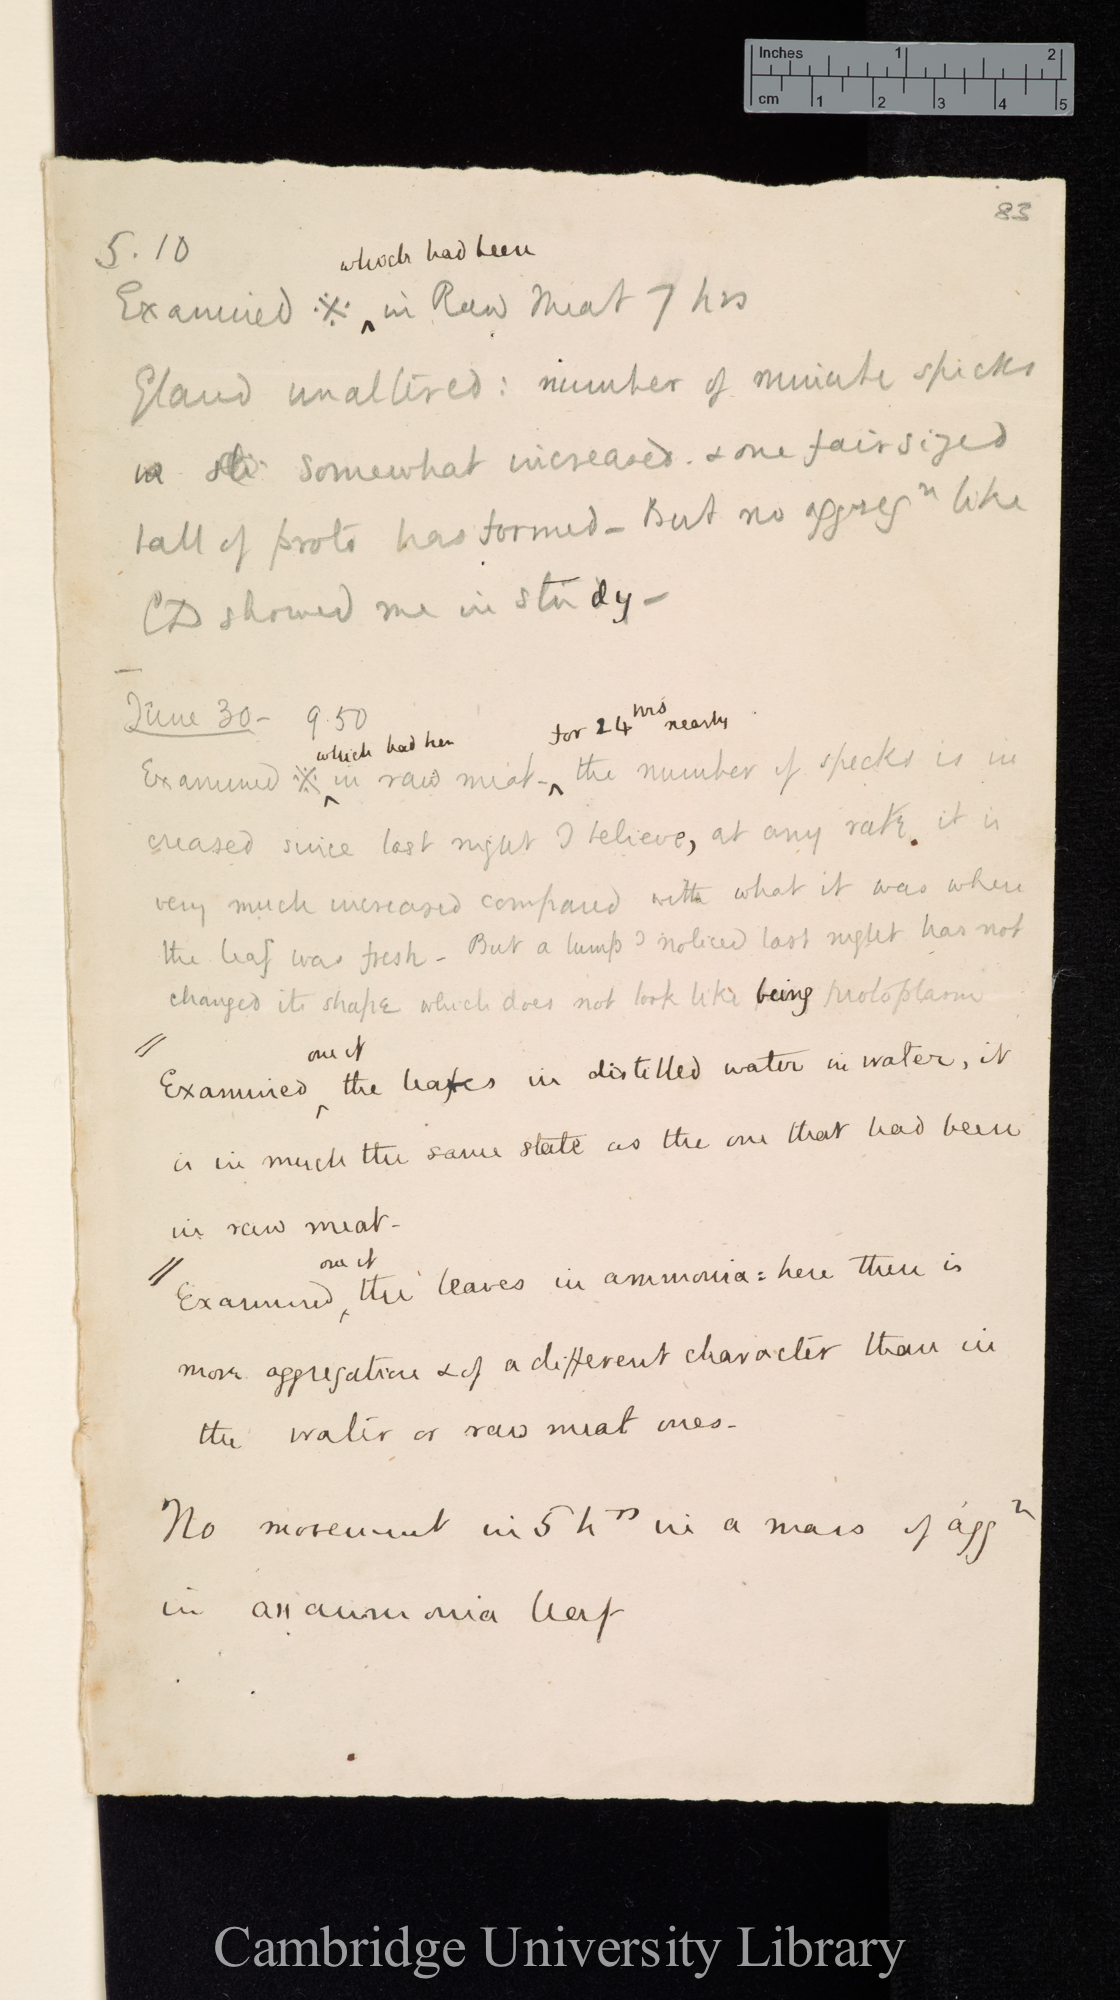 Inches 1 2
cm 1 2 3 4 5
83
5.10
which had been
Examined ※ ‸ in Raw Meat 7 hrs
Gland unaltered: number of minute specks
somewhat increased. & one fair sized
ball of proto has formed – But no aggregⁿ like
CD showed me in study –
June 30 – 9.50
which had been for 24 hrs nearly
Examined ※ ‸ in raw meat – ‸ the number of specks is in
creased since last night I believe, at any rate. it is
very much increased compared with what it was when
the leaf was fresh – But a lump I noticed last night has not
changed its shape which does not look like being protoplasm
//
one of
Examined ‸ the leaves in distilled water in water, it
is in much the same state as the one that had been
in raw meat –
//
one of
Examined ‸ the leaves in ammonia = here there is
more aggregation & of a different character than in
the water or raw meat ones –
No movement in 5 hrs in a mass of aggⁿ
in an ammonia leaf
Cambridge University Library